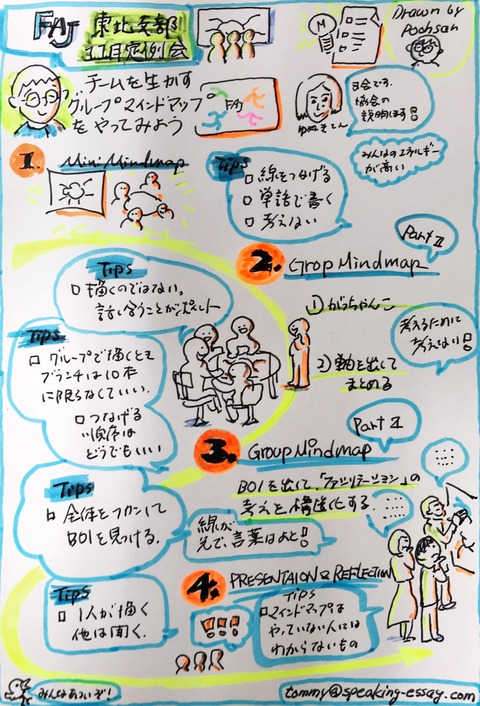 FAJ 東北支部
11月定例会
Drawn by
Poohsan
チームを生かす
グループマインドマップ
をやってみよう
FAJ
M
司会です。
協会の
説明します!
みんなのエネルギー
が高い
1. Mini Mindmap
Tips
□ 線をつなげる
□ 単語で書く
□ 考えない
Part II
2. Grop Mindmap
Tips
□ 描くのではない。
話し合うことがポイント
1) がっちゃんこ
考えるために
考えない!!
2) 軸を出して
まとめる
Tips
□ グループで描くとき
ブランチは10本
に限らなくていい。
□ つなげる
順序は
どうでもいい
3. Group Mindmap
BOIを出して、「ファシリテーション」の
考えを構造化する
Tips
□ 全体をフカンして
BOIを見つける。
線が
先で、言葉はあと!
4. PRESENTAION & REFLECTION
Tips
□ 1人が描く
他は聞く。
!!!
Tips
□ マインドマップは
やっていない人には
わからないもの
みんなあついぞ!
tommy@speaking-essay.com